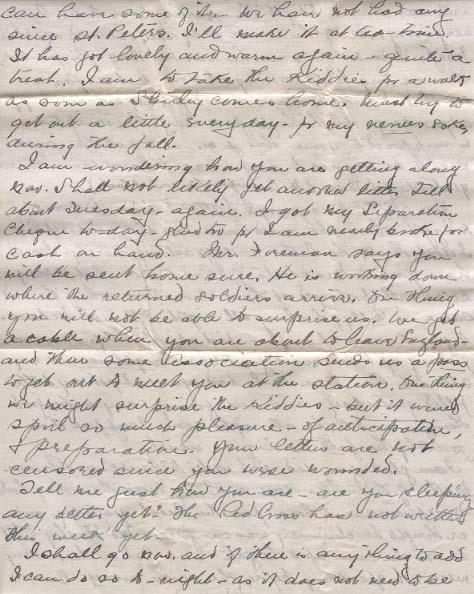 can have some of it. - We have not had any
since St. Peters. I'll make it at tea-time.
It has got lovely and warm again - quite a
treat. I am to take the Kiddies for a walk
as soon as Shirley comes home. Must try to
get out a little every day - for my nerves sake
during the fall.
I am wondering how you are getting along
now. Shall not likely get another letter till
about Tuesday - again. I got my Separation
Cheque to-day - glad too for I am nearly broke for
cash on hand. Mr. Foreman says you
will be sent home sure. He is working down
where the returned soldiers arrive. One thing
you will not be able to surprise us. We get
a cable when you are about to leave England -
and then some association sends us a pass
to get out to meet you at the station. One thing
we might surprise the Kiddies - but it would
spoil so much pleasure - of anticipation,
& preparation. Your letters are not
censored since you were wounded.
Tell me just how you are - are you sleeping
any better yet? The Red Cross has not written
this week yet -
I shall go now. and if there is anything to add
I can do so to-night - as it does not need to be